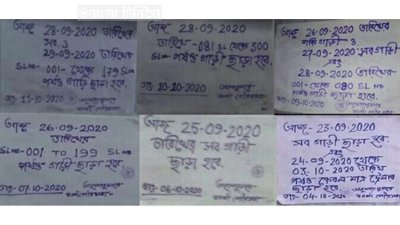 আজ 28-09-2020 তারিখের
সব ও
29-09-2020 তারিখের
SL NO
001- থেকে 179 SL NO
পর্যন্ত গাড়ী ছাড়া হবে
তাং-11-10-2020
আজ 28-09-2020
তারিখ-081 SL থেকে 300
SL NO পর্যন্ত গাড়ী ছাড়া হবে
তাং-10-10-2020
আজ 26-09-2020 তারিখের
বাকি গাড়ী ও
27-09-2020 সব গাড়ী
এবং
28-09-2020 তারিখের
001-থেকে 080 SL NO
পর্যন্ত গাড়ী ছাড়া হবে
তাং-09-10-2020
আজ 26-09-2020
তারিখের
SL NO-001 To 199 SL NO
পর্যন্ত গাড়ী ছাড়া হবে
তাং-07-10-2020
আজ 25-09-2020
তারিখের সব গাড়ী
ছাড়া হবে
তাং-06-10-2020
আজ-23-09-2020
সব গাড়ী ছাড়া হবে
এবং
24-09-2020 থেকে
03-10-2020 তারিখ
পর্যন্ত কেবল মাত্র
ছাড়া হবে
তাং-04-10-20